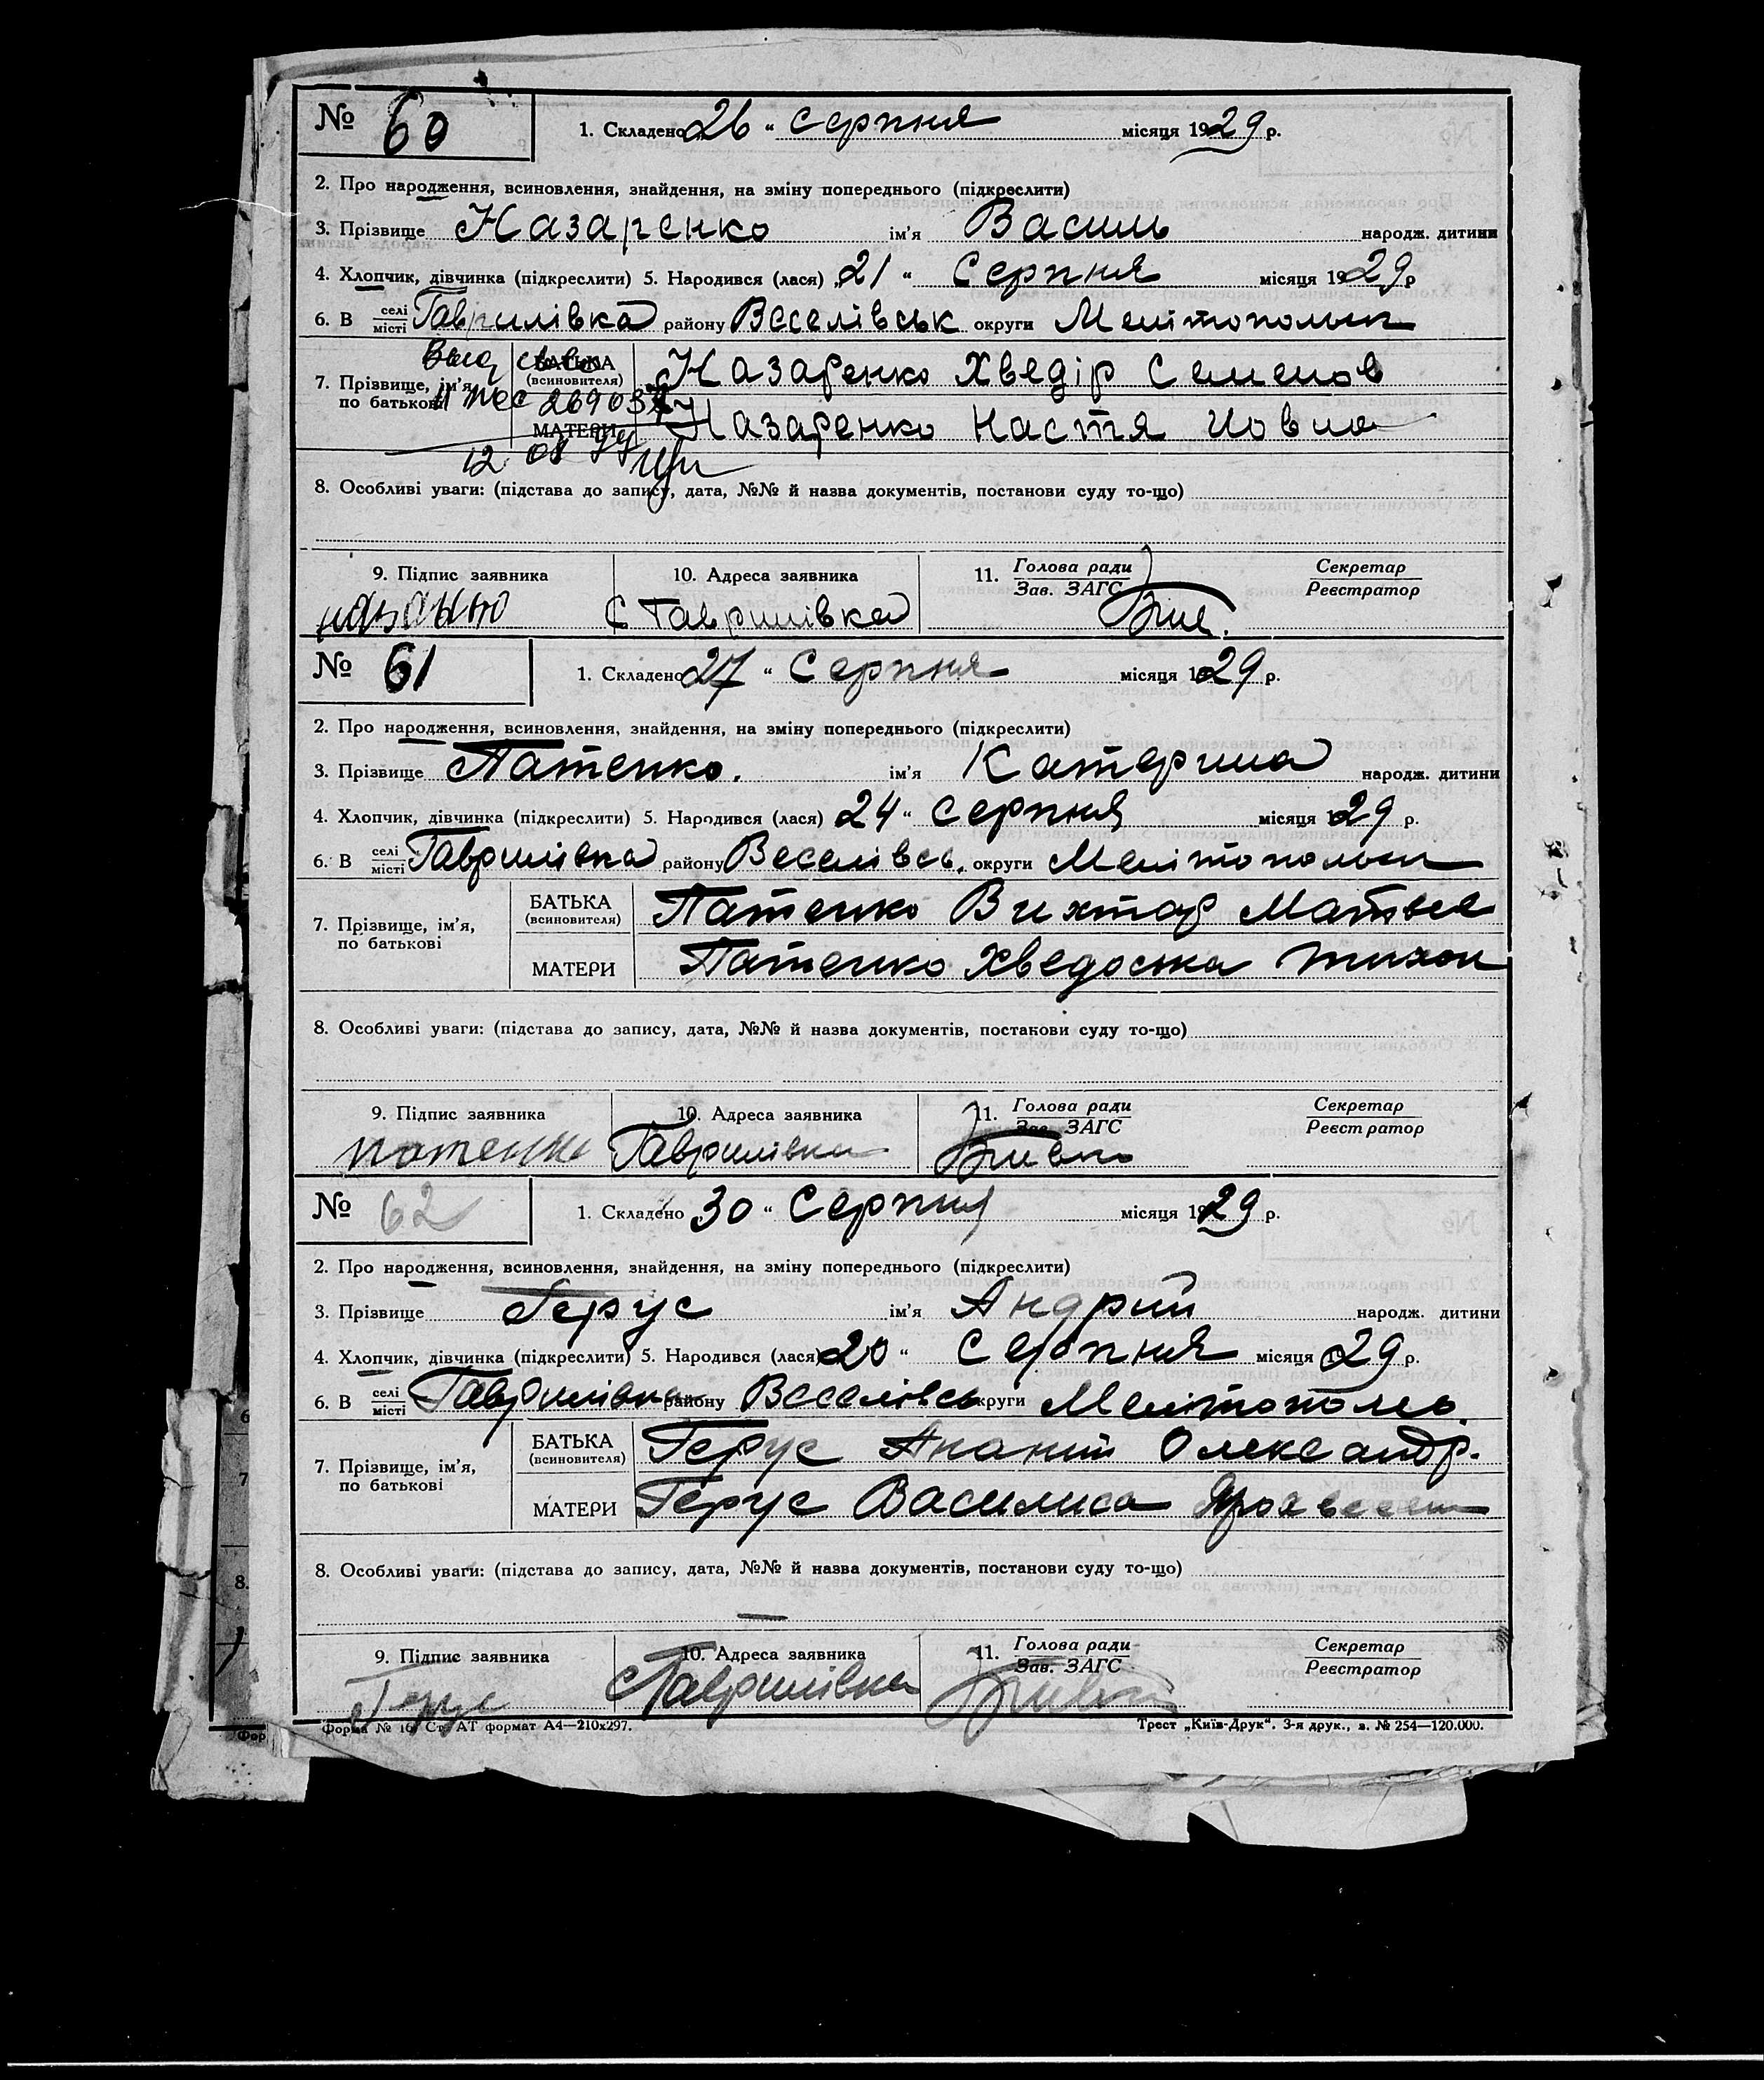 № 60 1. Складено „26“ серпня місяця 1929 р.
2. Про народження, всиновлення, знайдення, на зміну попереднього (підкреслити)
3. Прізвище Назаренко ім'я Василь народж. дитини
4. Хлопчик, дівчинка (підкреслити) 5. Народився (лася) „21“ Серпня місяця 1929 р
6. В селі/місті Гаврилівка району Веселівськ округи Мелітопольск
7. Прізвище, ім'я, по батькові БАТЬКА (всиновителя) Назаренко Хведір Семенов
МАТЕРИ Назаренко Настя Иовна
12 08
8. Особливі уваги: (підстава до запису, дата, №№ й назва документів, постанови суду то-що)
9. Підпис заявника 10. Адреса заявника 11. Голова ради/Зав. ЗАГС Секретар/Реєстратор
С Гаврилівка
№ 61 1. Складено „27“ Серпня місяця 1929 р.
2. Про народження, всиновлення, знайдення, на зміну попереднього (підкреслити)
3. Прізвище Патенко. ім'я Катерина народж. дитини
4. Хлопчик, дівчинка (підкреслити) 5. Народився (лася) 24“ серпня місяця 1929 р.
6. В селі/місті Гаврилівка району Веселівсь. округи Мелітопольск
7. Прізвище, ім'я, по батькові БАТЬКА (всиновителя) Патенко Вихтор Матвее
МАТЕРИ Патенко Хведоська Тихон
8. Особливі уваги: (підстава до запису, дата, №№ й назва документів, постанови суду то-що)
9. Підпис заявника 10. Адреса заявника 11. Голова ради/Зав. ЗАГС Секретар/Реєстратор
Патенко Гаврилівка
№ 62 1. Складено 30“ Серпня місяця 1929 р.
2. Про народження, всиновлення, знайдення, на зміну попереднього (підкреслити)
3. Прізвище Герус ім'я Андрий народж. дитини
4. Хлопчик, дівчинка (підкреслити) 5. Народився (лася) 20“ Серпня місяця 1929 р.
6. В селі/місті Гаврилівка району Веселівсь округи Мелітополь.
7. Прізвище, ім'я, по батькові БАТЬКА (всиновителя) Герус Ананий Олександр.
МАТЕРИ Герус Василиса
8. Особливі уваги: (підстава до запису, дата, №№ й назва документів, постанови суду то-що)
9. Підпис заявника 10. Адреса заявника 11. Голова ради/Зав. ЗАГС Секретар/Реєстратор
Герус с Гаврилівка
Форма № 16. Ст. АТ формат А4—210х297. Трест „Київ-Друк“. 3-я друк., з. № 254—120.000.